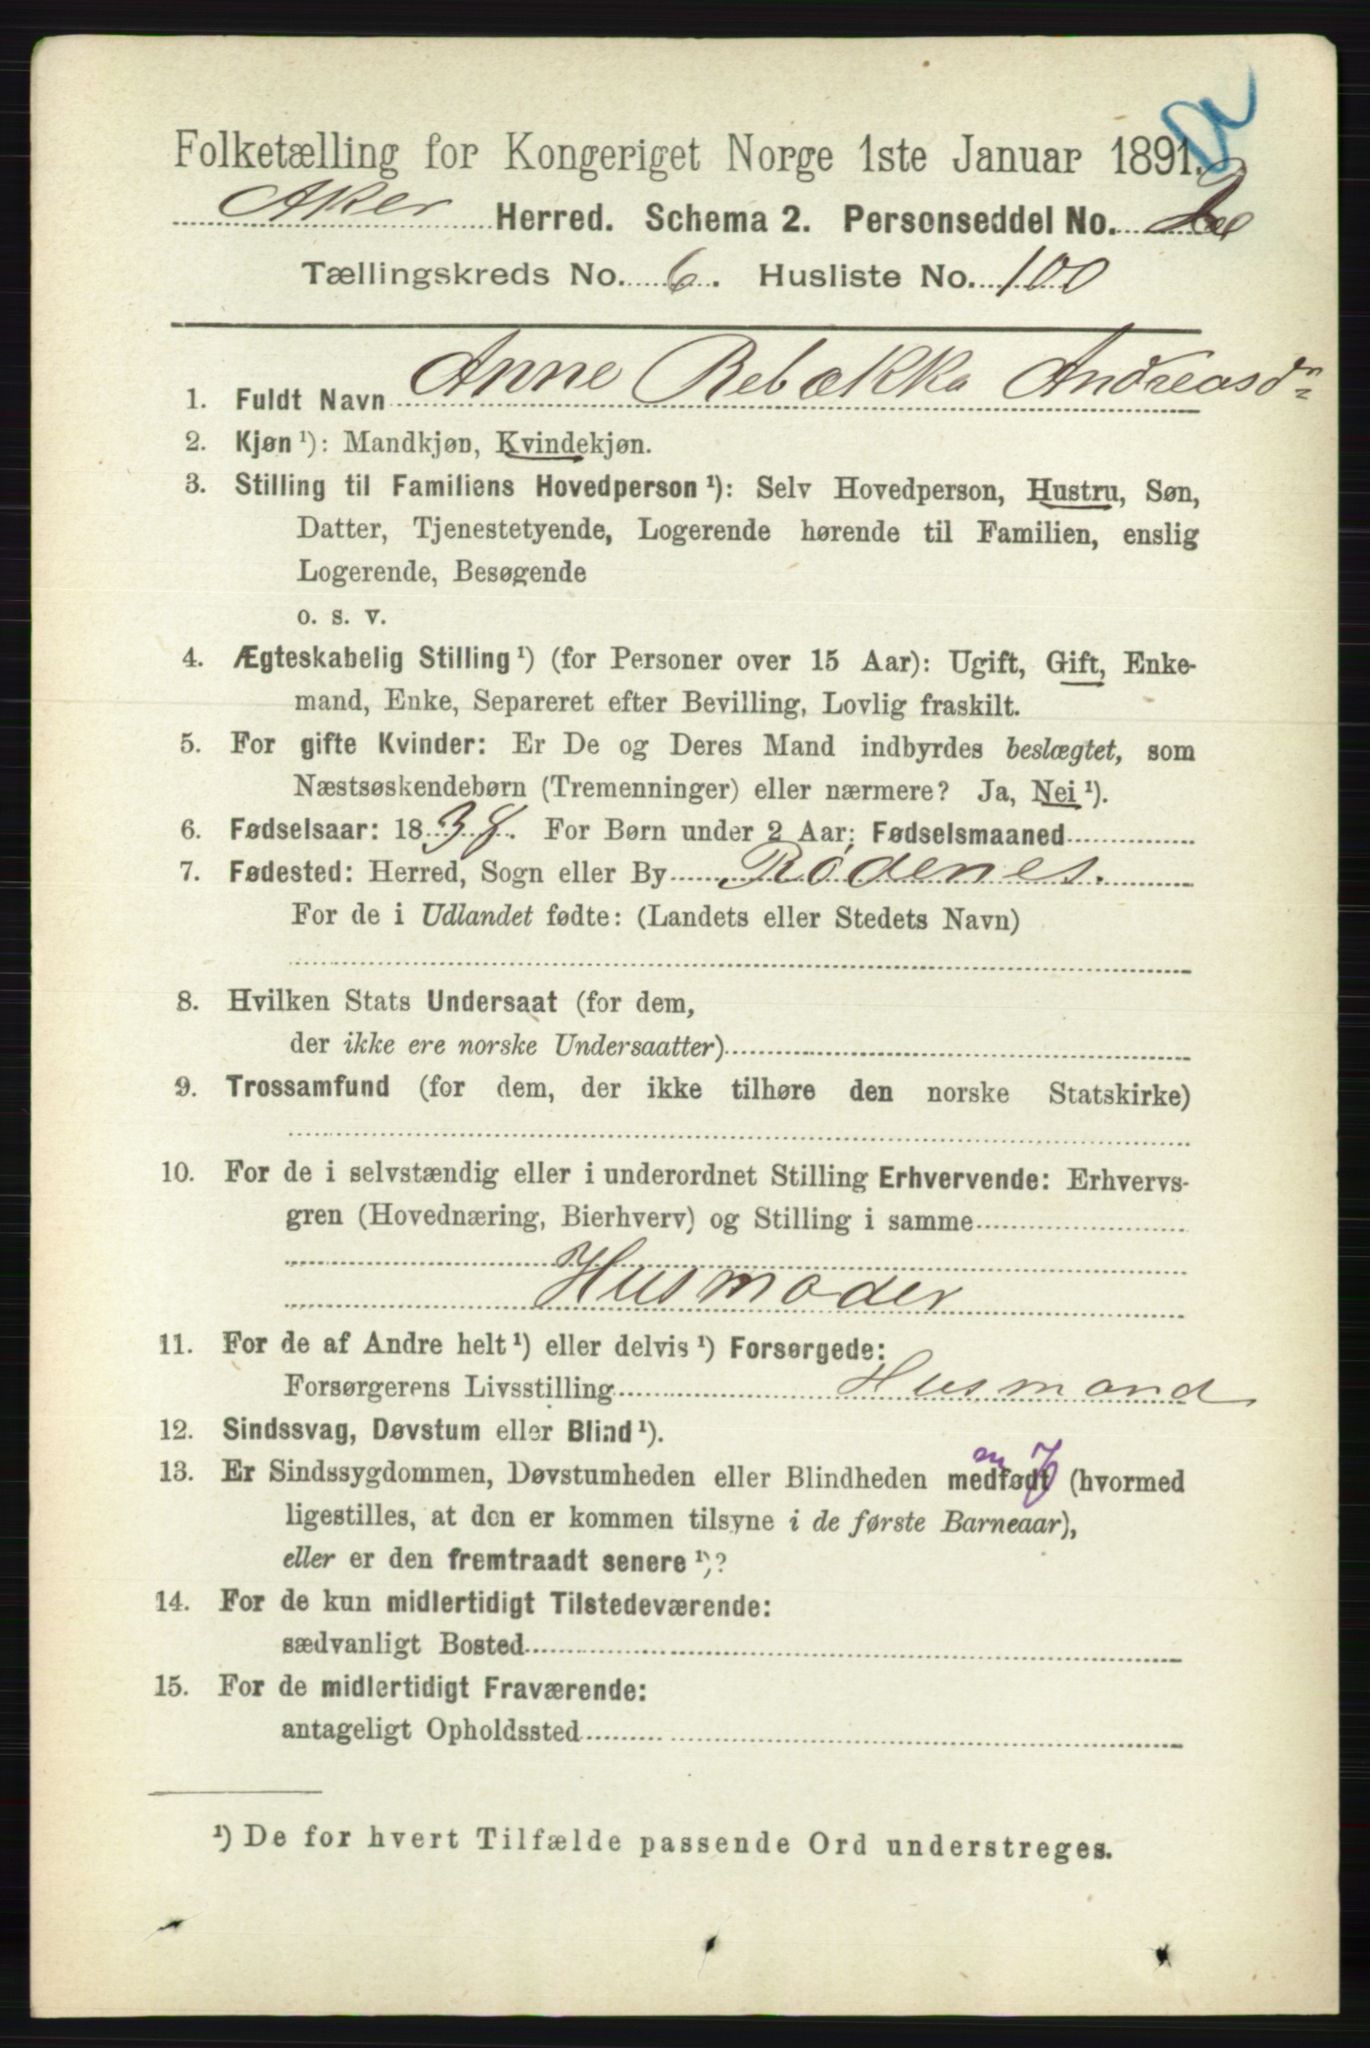 Folketælling for Kongeriget Norge 1ste Januar 1891.
Aker Herred. Schema 2. Personseddel No. 2
Tællingskreds No. 6. Husliste No. 100
1. Fuldt Navn Anne Rebækka Andreasdn
2. Kjøn ¹): Mandkjøn, Kvindekjøn.
3. Stilling til Familiens Hovedperson ¹): Selv Hovedperson, Hustru, Søn,
Datter, Tjenestetyende, Logerende hørende til Familien, enslig
Logerende, Besøgende
o. s. v.
4. Ægteskabelig Stilling ¹) (for Personer over 15 Aar): Ugift, Gift, Enke-
mand, Enke, Separeret efter Bevilling, Lovlig fraskilt.
5. For gifte Kvinder: Er De og Deres Mand indbyrdes beslægtet, som
Næstsøskendebørn (Tremenninger) eller nærmere? Ja, Nei ¹).
6. Fødselsaar: 1838. For Børn under 2 Aar: Fødselsmaaned
7. Fødested: Herred, Sogn eller By Rødenes.
For de i Udlandet fødte: (Landets eller Stedets Navn)
8. Hvilken Stats Undersaat (for dem,
der ikke ere norske Undersaatter)
9. Trossamfund (for dem, der ikke tilhøre den norske Statskirke)
10. For de i selvstændig eller i underordnet Stilling Erhvervende: Erhvervs-
gren (Hovednæring, Bierhverv) og Stilling i samme
Husmoder
11. For de af Andre helt ¹) eller delvis ¹) Forsørgede:
Forsørgerens Livsstilling Husmand
12. Sindssvag, Døvstum eller Blind ¹).
13. Er Sindssygdommen, Døvstumheden eller Blindheden medfødt (hvormed
ligestilles, at den er kommen tilsyne i de første Barneaar),
eller er den fremtraadt senere ¹)?
14. For de kun midlertidigt Tilstedeværende:
sædvanligt Bosted
15. For de midlertidigt Fraværende:
antageligt Opholdssted
¹) De for hvert Tilfælde passende Ord understreges.